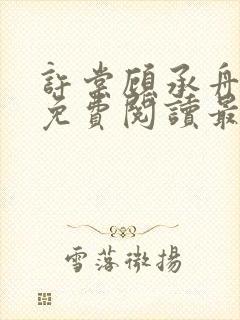 許棠顧承舟
免費閱讀最
雪落微揚